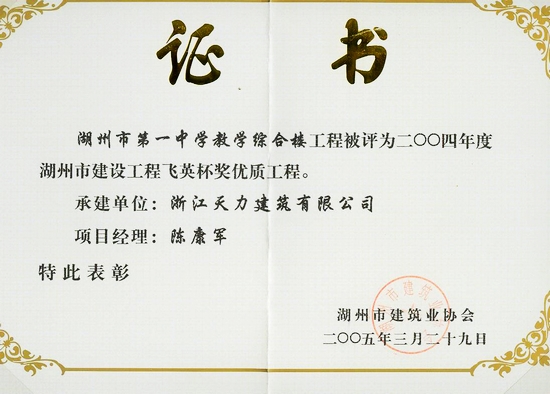 证书
湖州市第一中学教学综合楼工程被评为二〇〇四年度
湖州市建设工程飞英杯奖优质工程。
承建单位：浙江天力建筑有限公司
项目经理：陈康军
特此表彰
湖州市建筑业协会
二〇〇五年三月二十九日
湖州市建筑业协会